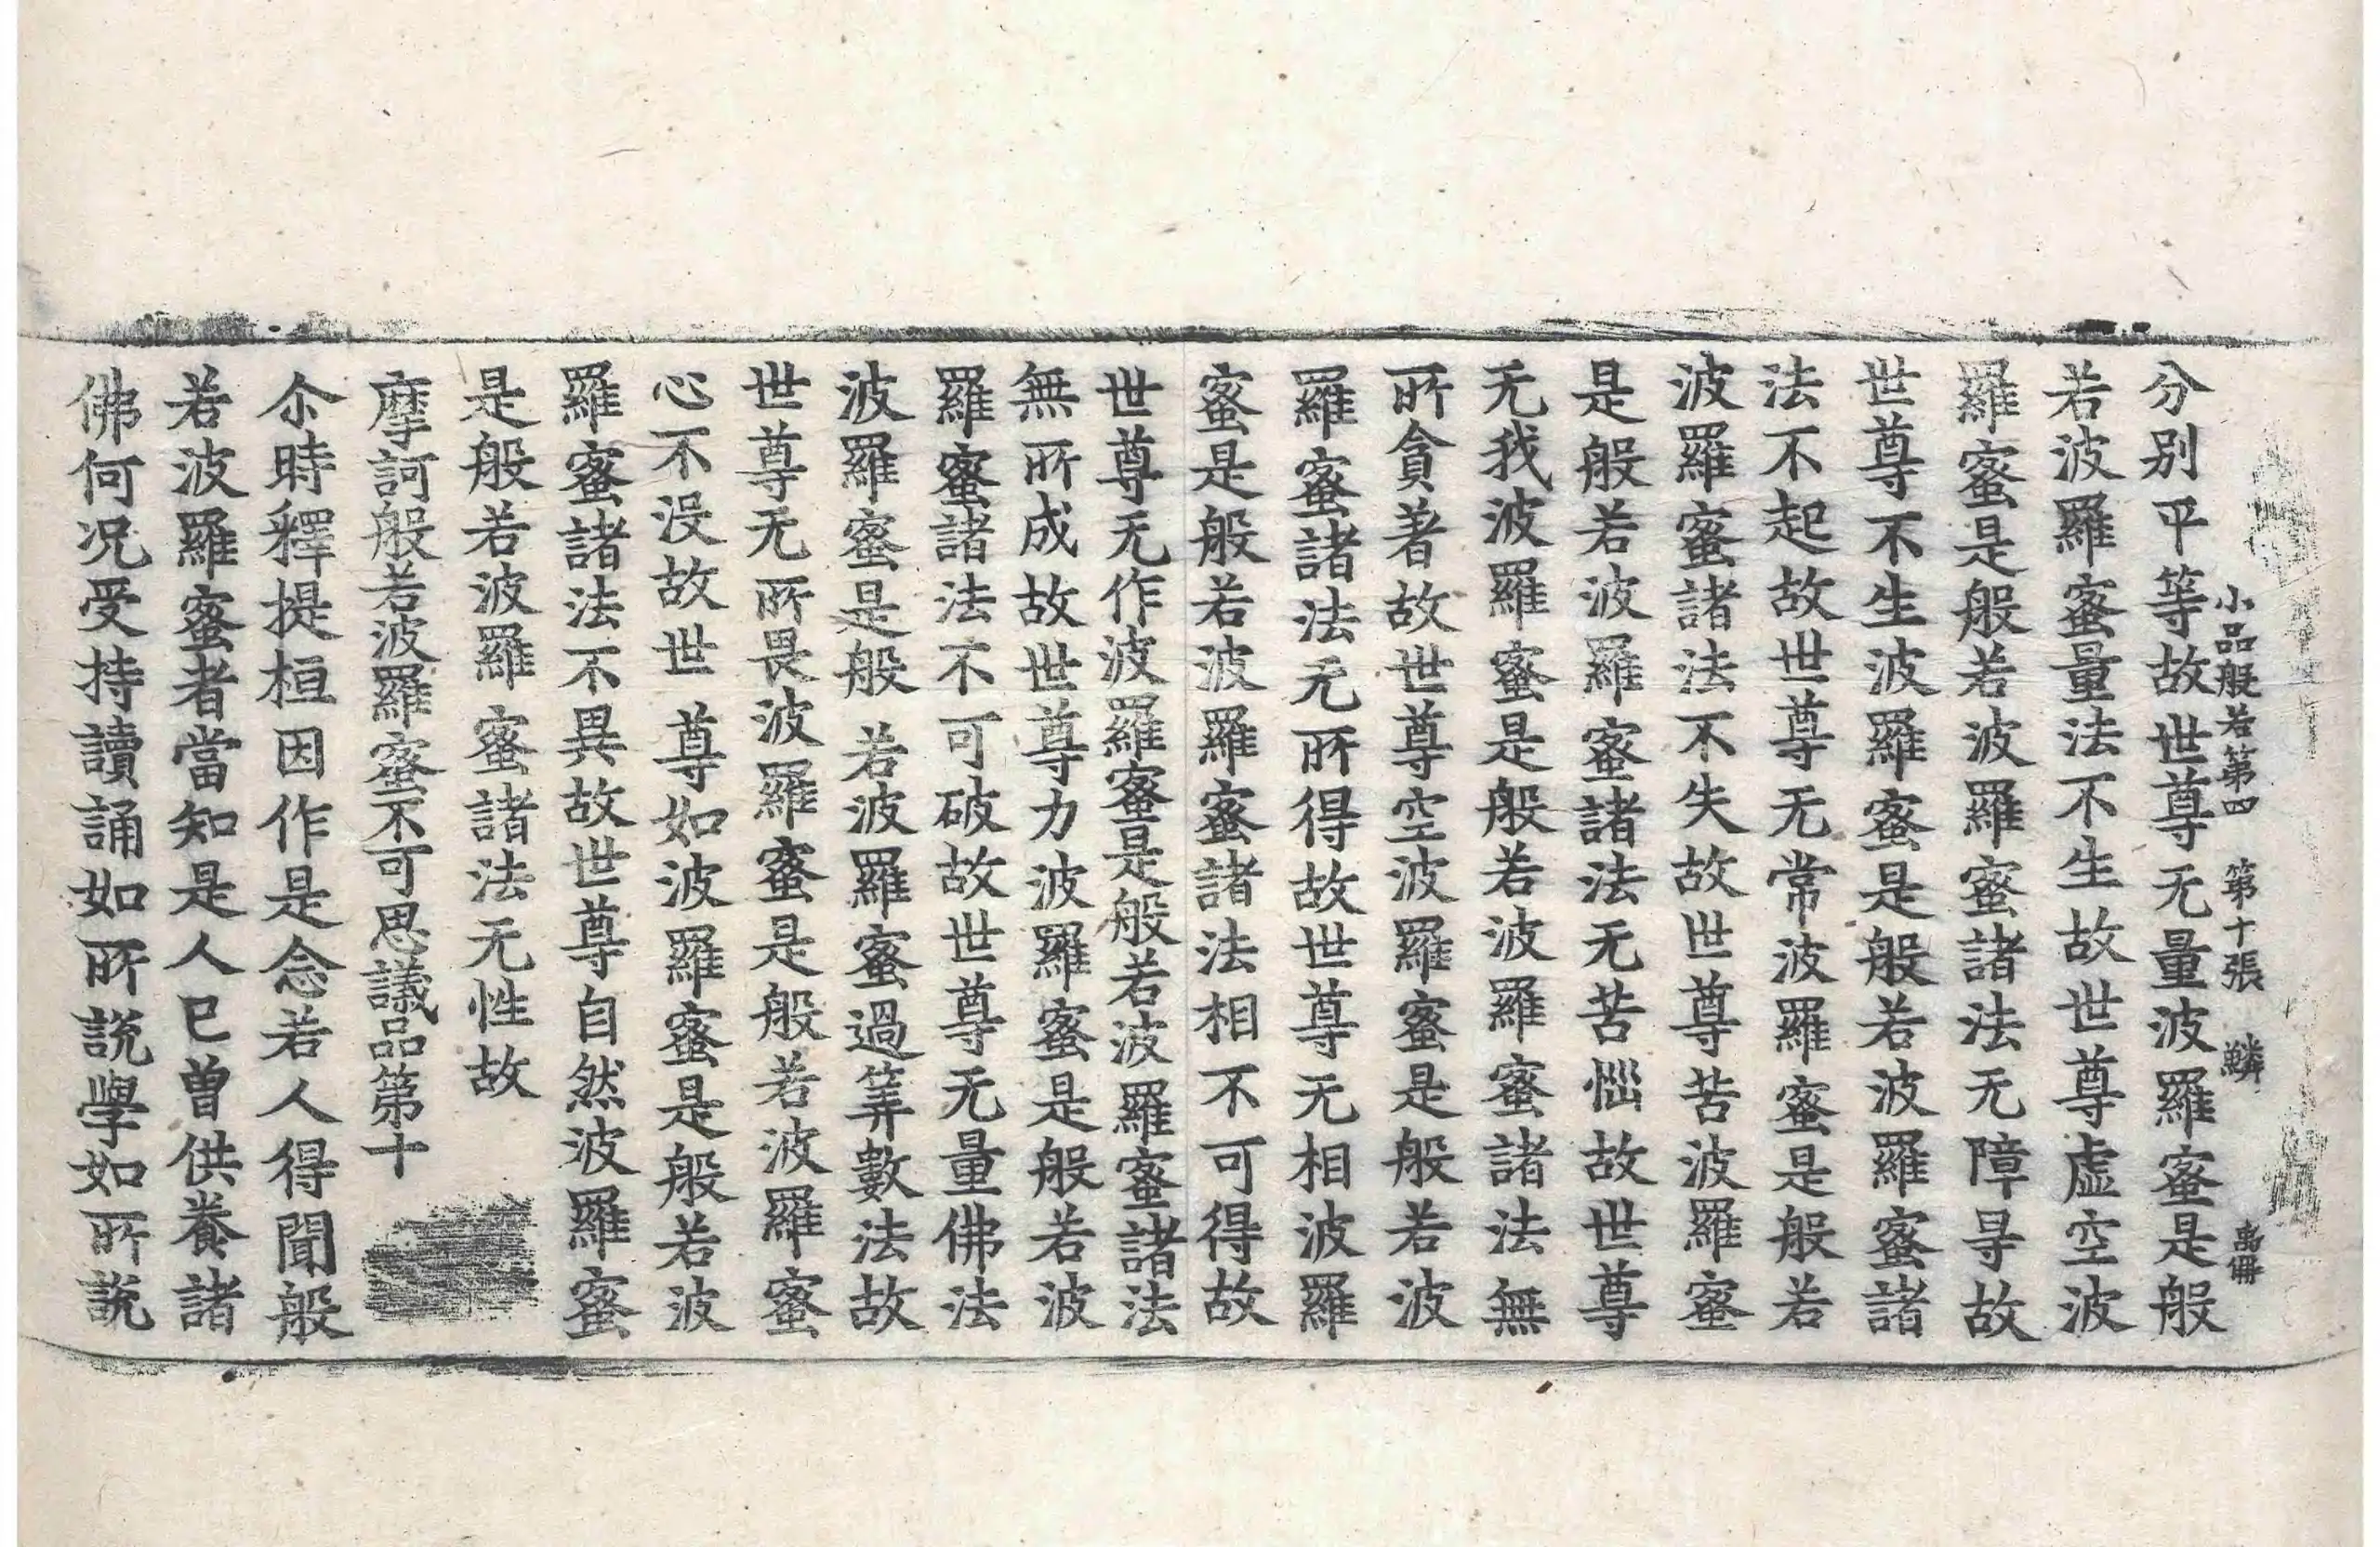 小品般若第四　第十張　鱗　禹冊
分別平等故世尊无量波羅蜜是般
若波羅蜜量法不生故世尊虛空波
羅蜜是般若波羅蜜諸法无障㝵故
世尊不生波羅蜜是般若波羅蜜諸
法不起故世尊无常波羅蜜是般若
波羅蜜諸法不失故世尊苦波羅蜜
是般若波羅蜜諸法无苦惱故世尊
无我波羅蜜是般若波羅蜜諸法無
所貪著故世尊空波羅蜜是般若波
羅蜜諸法无所得故世尊无相波羅
蜜是般若波羅蜜諸法相不可得故
世尊无作波羅蜜是般若波羅蜜諸法
無所成故世尊力波羅蜜是般若波
羅蜜諸法不可破故世尊无量佛法
波羅蜜是般若波羅蜜過筭數法故
世尊无所畏波羅蜜是般若波羅蜜
心不沒故世尊如波羅蜜是般若波
羅蜜諸法不異故世尊自然波羅蜜
是般若波羅蜜諸法无性故
摩訶般若波羅蜜不可思議品第十
尒時釋提桓因作是念若人得聞般
若波羅蜜者當知是人已曾供養諸
佛何況受持讀誦如所說學如所說